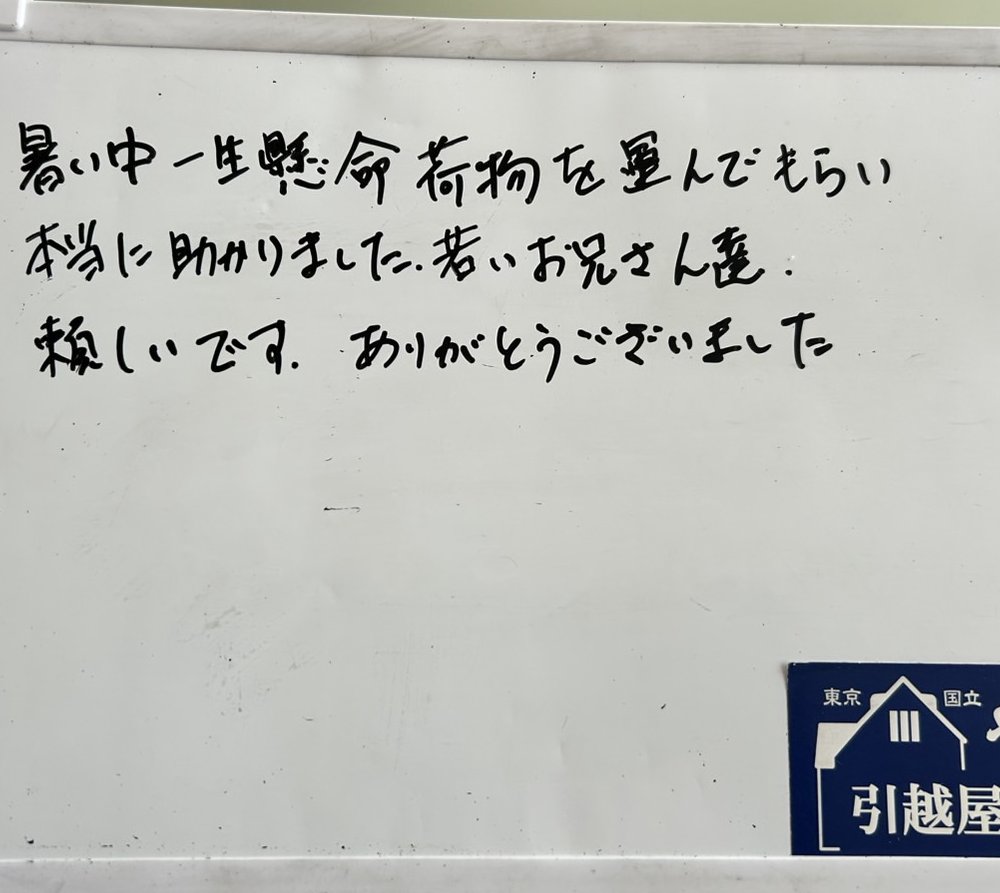 暑い中一生懸命荷物を運んでもらい
本当に助かりました.若いお兄さん達.
頼しいです.ありがとうございました
東京 国立
引越屋